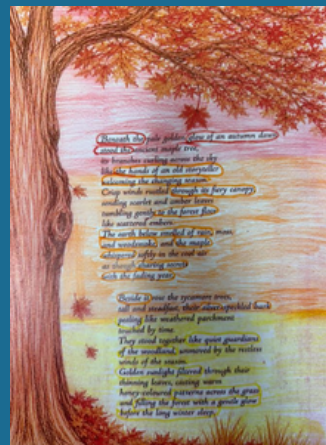 Beneath the pale golden glow of an autumn dawn
stood the ancient maple tree,
its branches curling across the sky
like the hands of an old storyteller
welcoming the changing season.
Crisp winds rustled through its fiery canopy,
sending scarlet and amber leaves
tumbling gently to the forest floor
like scattered embers.
The earth below smelled of rain, moss,
and woodsmoke, and the maple
whispered softly in the cool air
as though sharing secrets
with the fading year.
Beside it rose the sycamore trees,
tall and steadfast, their silver-speckled bark
peeling like weathered parchment
touched by time.
They stood together like quiet guardians
of the woodland, unmoved by the restless
winds of the season.
Golden sunlight filtered through their
thinning leaves, casting warm
honey-coloured patterns across the grass
and filling the forest with a gentle glow
before the long winter sleep.